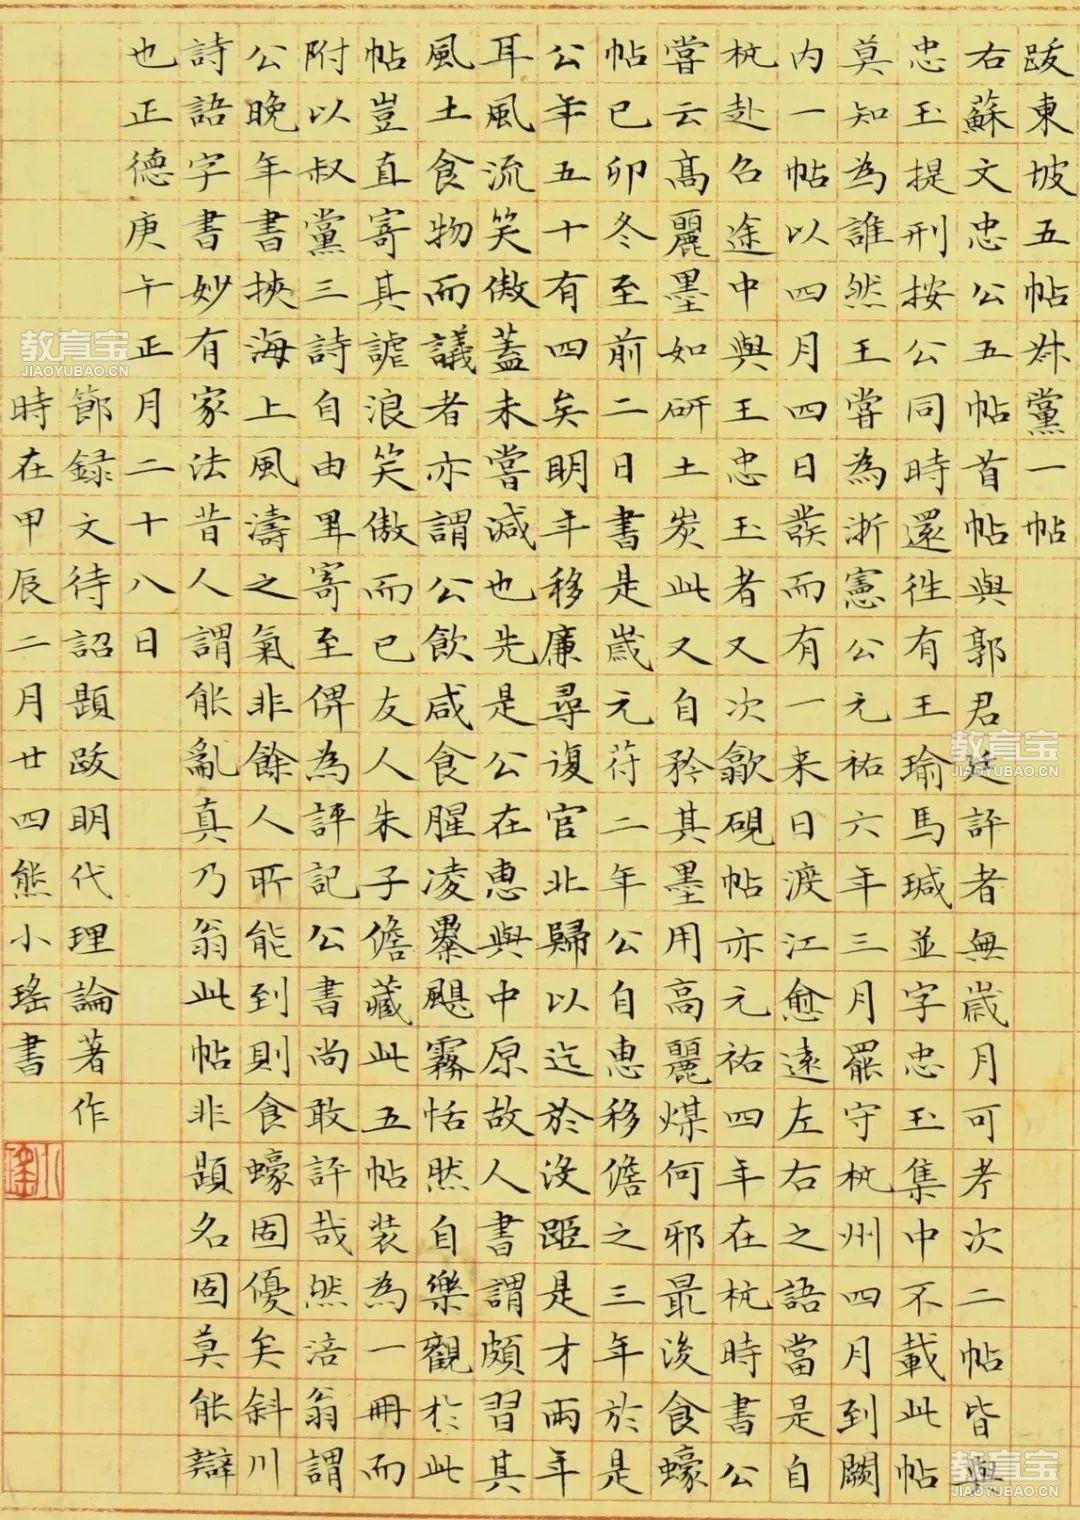 跋東坡五帖叔黨一帖
右蘇文忠公五帖首帖與郭君廷評者無歲月可考次二帖皆與
忠玉提刑按公同時還往有王瑜馬瑊並字忠玉集中不載此帖
莫知為誰然王嘗為浙憲公元祐六年三月罷守杭州四月到闕
内一帖以四月四日發而有一来日渡江愈遠左右之語當是自
杭赴召途中與王忠玉者又次歙硯帖亦元祐四年在杭時書公
嘗云髙麗墨如研土炭此又自矜其墨用高麗煤何邪最後食蠔
帖已卯冬至前二日書是歲元符二年公自惠移儋之三年於是
公年五十有四矣明年移廉尋復官北歸以迄於沒距是才兩年
耳風流笑傲蓋未嘗減也先是公在惠與中原故人書謂頗習其
風土食物而議者亦謂公飲咸食腥凌暴颶霧恬然自樂觀於此
帖豈直寄其謔浪笑傲而已友人朱子儋藏此五帖裝為一冊而
附以叔黨三詩自由里寄至俾為評記公書尚敢評哉然涪翁謂
公晚年書挾海上風濤之氣非餘人所能到則食蠔固優矣斜川
詩語字書妙有家法昔人謂能亂真乃翁此帖非題名固莫能辯
也正德庚午正月二十八日
節録文待詔題跋明代理論著作
時在甲辰二月廿四熊小瑤書
小瑤
教育宝
JIAOYUBAO.CN
教育宝
JIAOYUBAO.CN
教育宝
JIAOYUBAO.CN